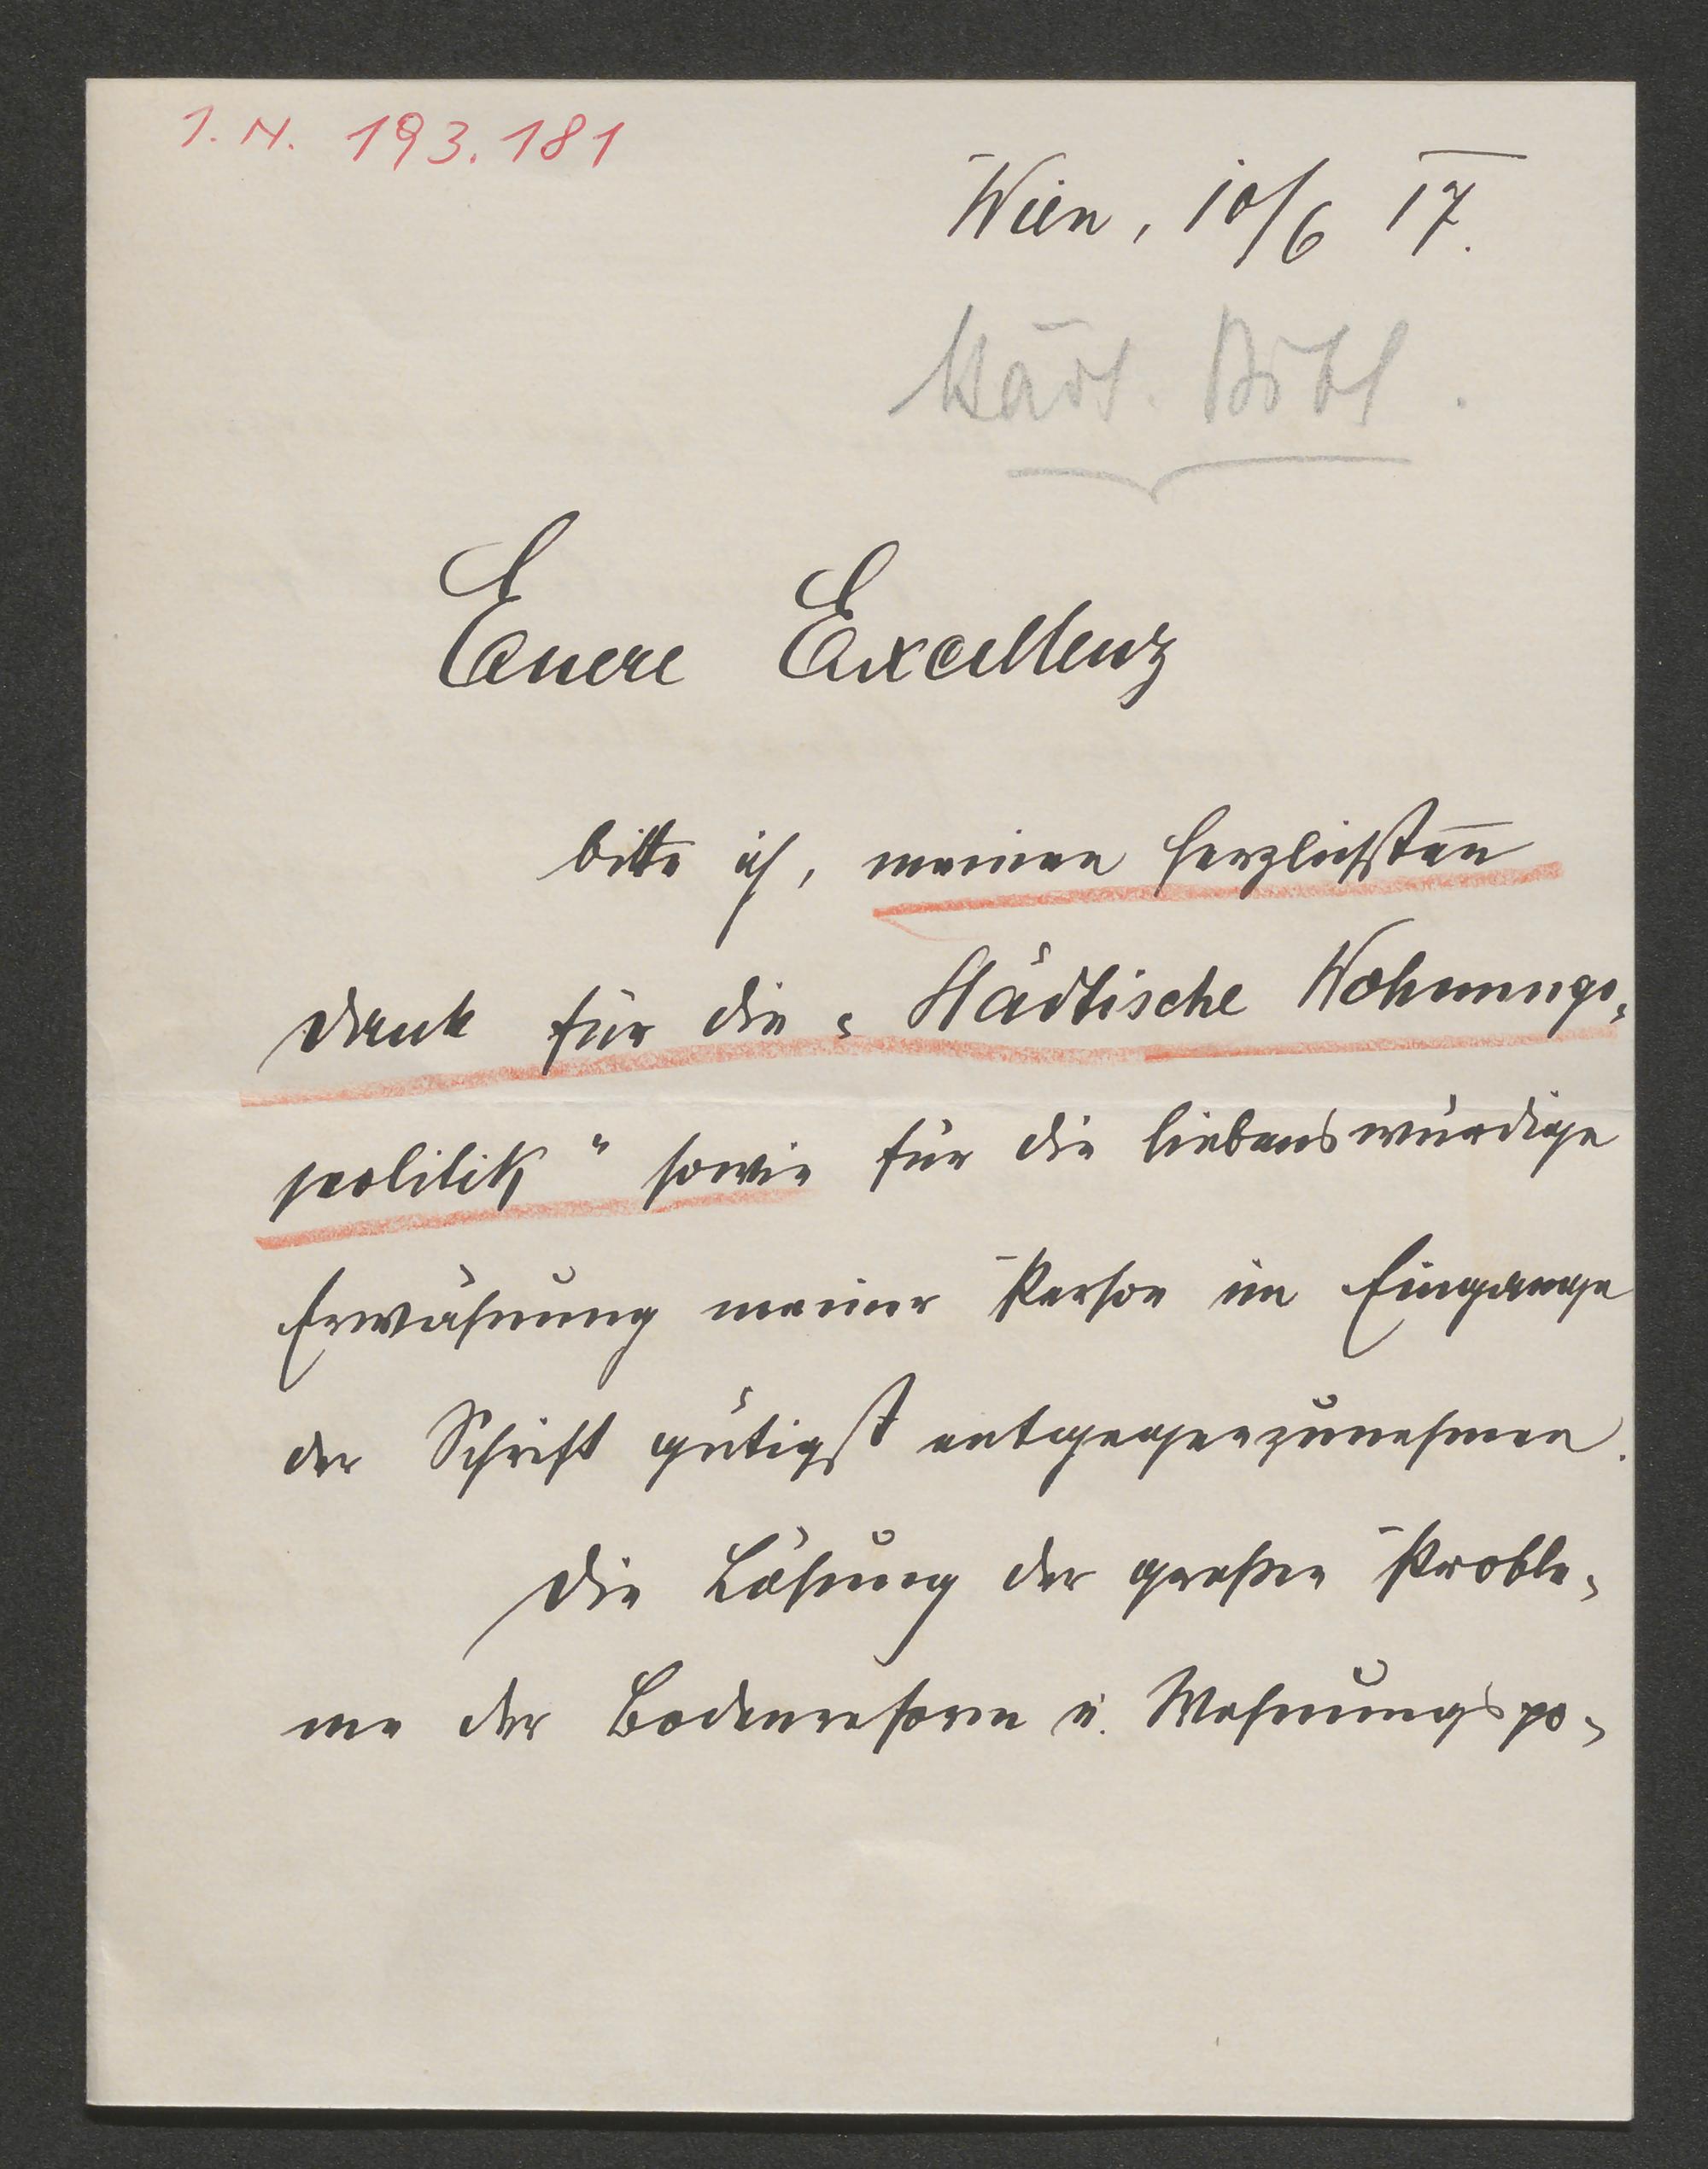 I.N. 193.181
Wien, 10/6 17.
Euere Excellenz
bitte ich, meinen herzlichsten
Dank für die „Städtische Wohnungs-
politik" sowie für die liebenswürdige
Erwähnung meiner Person im Eingange
der Schrift gütigst entgegenzunehmen.
Die Lösung der großen Proble-
me der Bodenreform u. Wohnungspo-